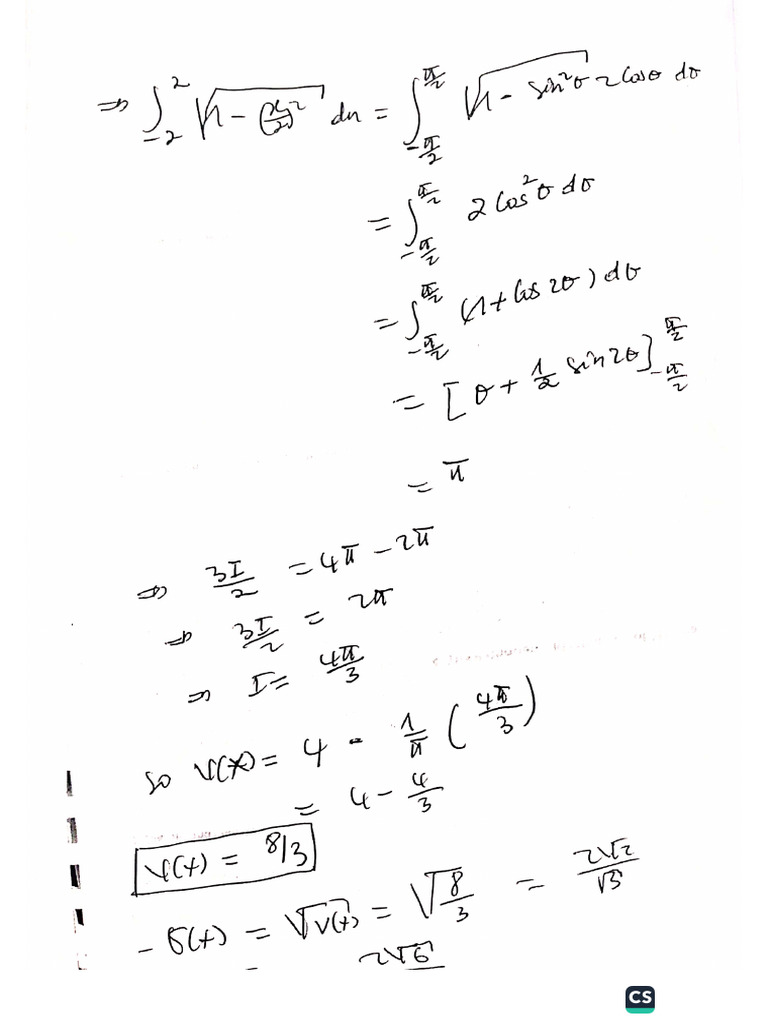 ⇒ ∫_{-2}^{2} √(1 - (x/2)²) dx = ∫_{-π/2}^{π/2} √(1 - sin²θ) 2 cosθ dθ
= ∫_{-π/2}^{π/2} 2 cos²θ dθ
= ∫_{-π/2}^{π/2} (1 + cos 2θ) dθ
= [θ + 1/2 sin 2θ]_{-π/2}^{π/2}
= π
⇒ 3I/2 = 4π - 2π
⇒ 3I/2 = 2π
⇒ I = 4π/3
so V(X) = 4 - 1/π (4π/3)
= 4 - 4/3
V(X) = 8/3
- σ(X) = √V(X) = √(8/3) = 2√2/√3
= 2√6
CS